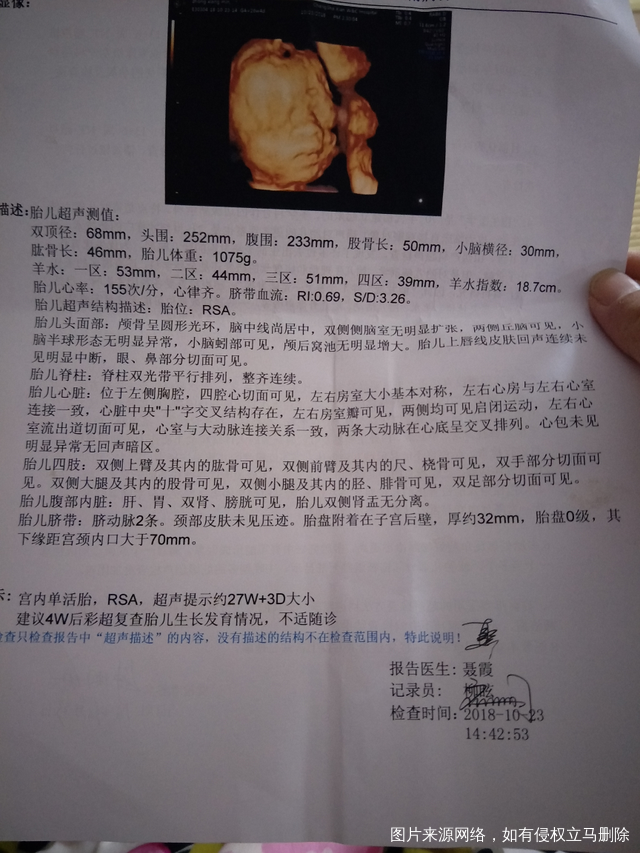 显像:
描述:胎儿超声测值:
双顶径: 68mm, 头围: 252mm, 腹围: 233mm, 股骨长: 50mm, 小脑横径: 30mm,
肱骨长: 46mm, 胎儿体重: 1075g。
羊水: 一区: 53mm, 二区: 44mm, 三区: 51mm, 四区: 39mm, 羊水指数: 18.7cm。
胎儿心率: 155次/分, 心律齐。脐带血流: RI:0.69, S/D:3.26。
胎儿超声结构描述: 胎位: RSA。
胎儿头面部: 颅骨呈圆形光环, 脑中线尚居中, 双侧侧脑室无明显扩张, 两侧丘脑可见, 小
脑半球形态无明显异常, 小脑蚓部可见, 颅后窝池无明显增大。胎儿上唇线皮肤回声连续未
见明显中断, 眼、鼻部分切面可见。
胎儿脊柱: 脊柱双光带平行排列, 整齐连续。
胎儿心脏: 位于左侧胸腔, 四腔心切面可见, 左右房室大小基本对称, 左右心房与左右心室
连接一致, 心脏中央"十"字交叉结构存在, 左右房室瓣可见, 两侧均可见启闭运动, 左右心
室流出道切面可见, 心室与大动脉连接关系一致, 两条大动脉在心底呈交叉排列。心包未见
明显异常无回声暗区。
胎儿四肢: 双侧上臂及其内的肱骨可见, 双侧前臂及其内的尺、桡骨可见, 双手部分切面可
见。双侧大腿及其内的股骨可见, 双侧小腿及其内的胫、腓骨可见, 双足部分切面可见。
胎儿腹部内脏: 肝、胃、双肾、膀胱可见, 胎儿双侧肾盂无分离。
胎儿脐带: 脐动脉2条。颈部皮肤未见压迹。胎盘附着在子宫后壁, 厚约32mm, 胎盘0级, 其
下缘距宫颈内口大于70mm。
示: 宫内单活胎, RSA, 超声提示约27W+3D大小
建议4W后彩超复查胎儿生长发育情况, 不适随诊
检查只检查报告中“超声描述”的内容, 没有描述的结构不在检查范围内, 特此说明!
报告医生: 聂霞
记录员:
检查时间: 2018-10-23
14:42:53
图片来源网络，如有侵权立马删除